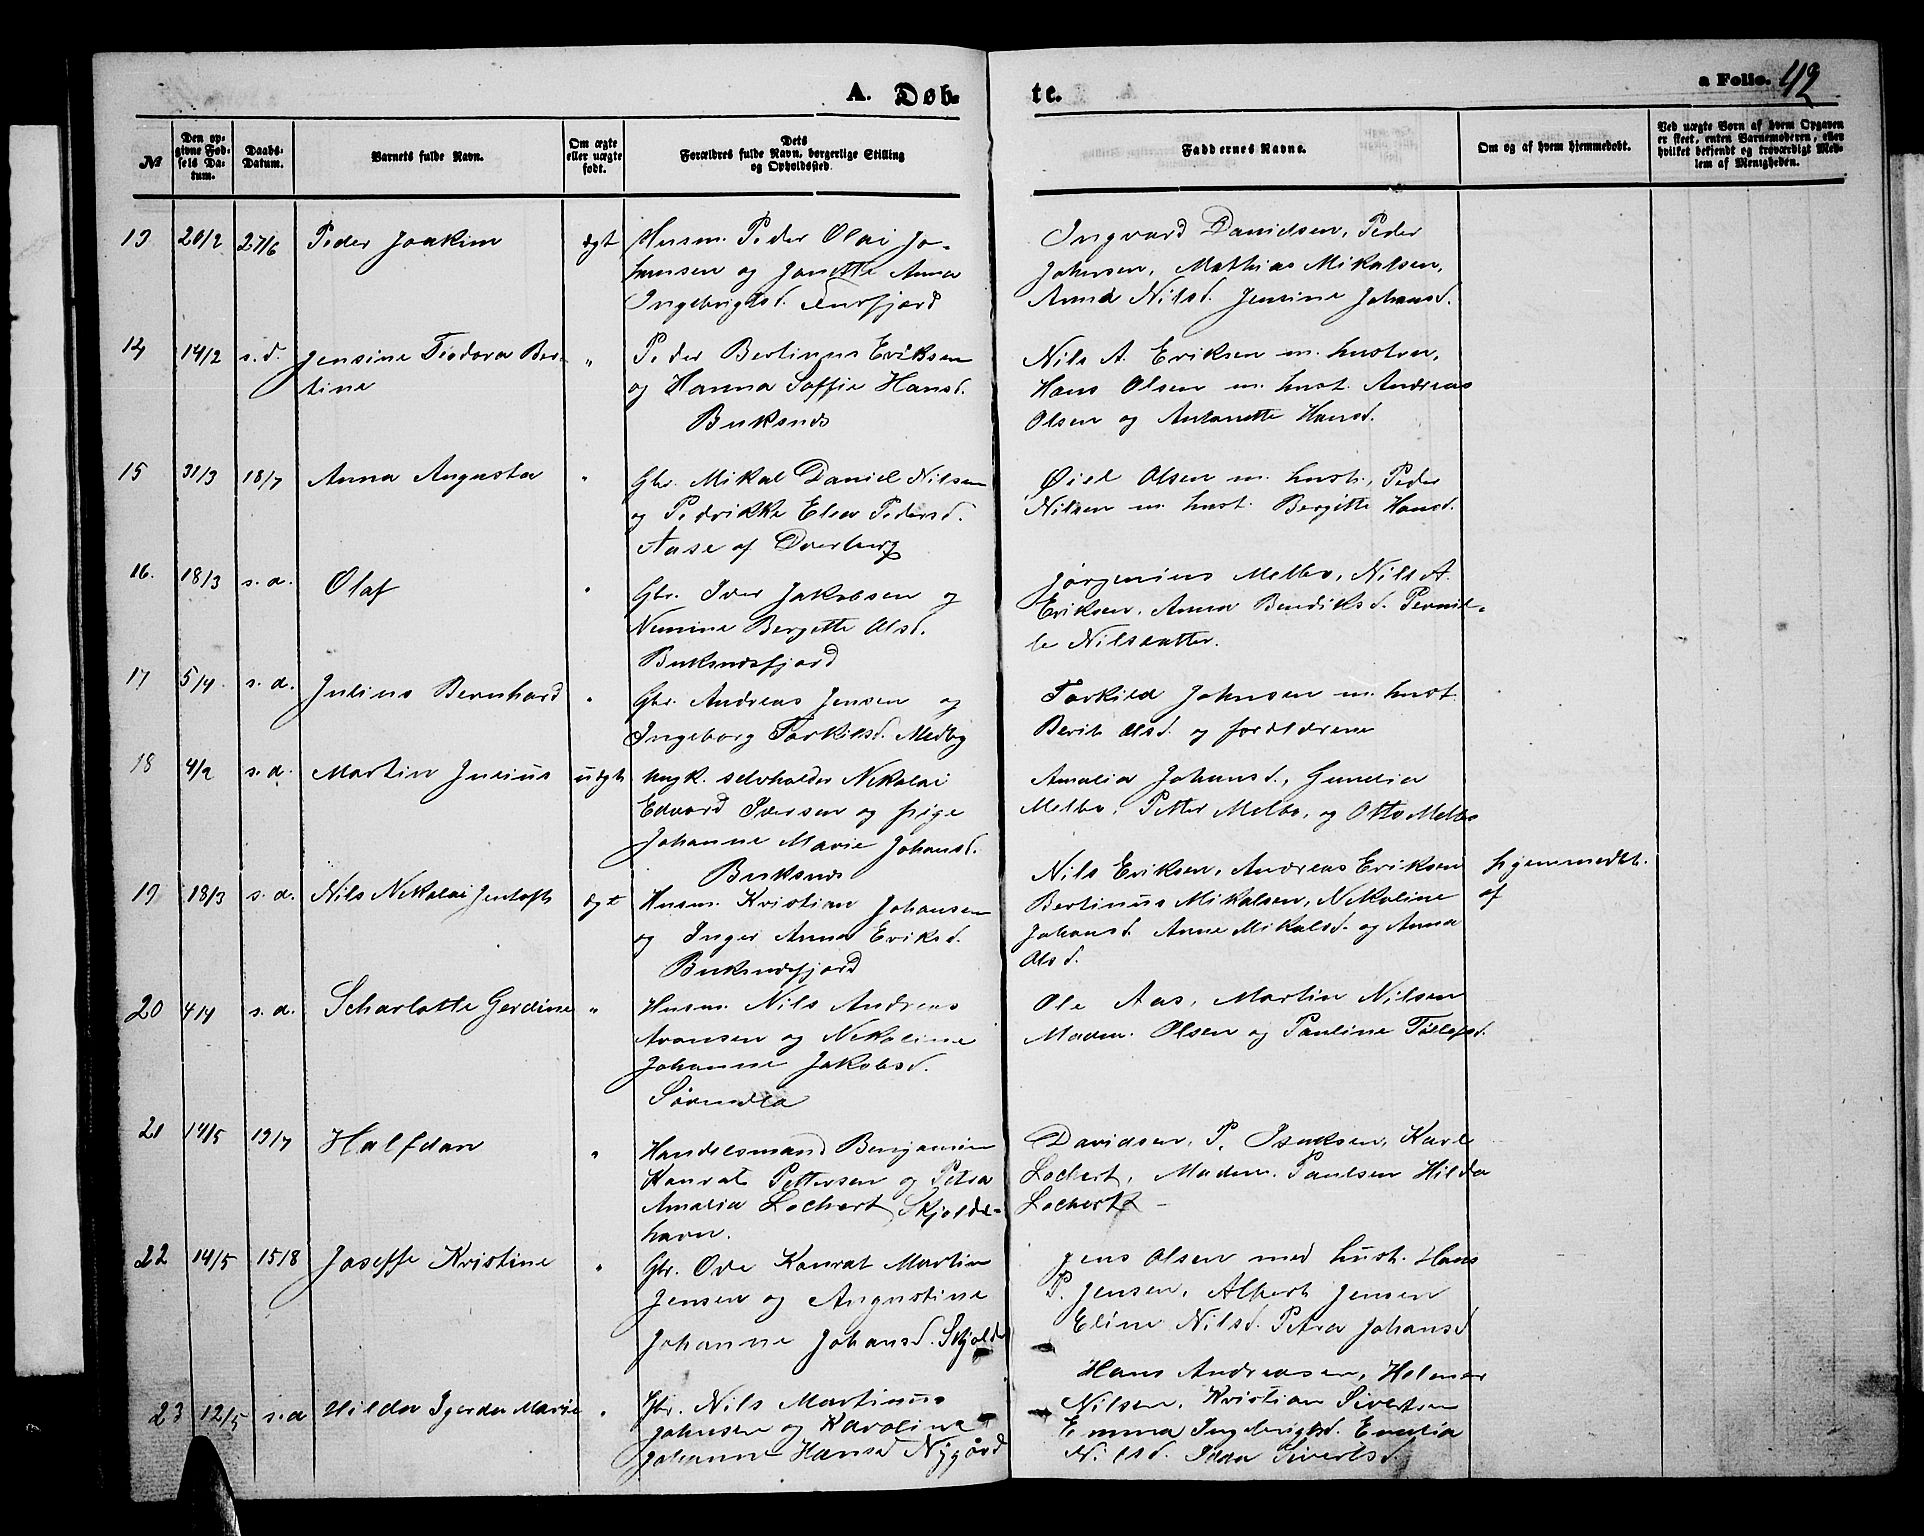 A. Døb- te.
a Folio. 42
No
Den opgivne Fødsels Datum.
Daabs-Datum.
Barnets fulde Navn.
Om ægte eller uægte født.
Dets Forældres fulde Navn, borgerlige Stilling og Opholdssted.
Faddernes Navne.
Om og af hvem hjemmedøbt.
Ved uægte Børn af hvem Opgaven er skeet, enten Barnemoderen, eller hvilket bekjendt og troværdigt Medlem af Menigheden.
13 20/2 27/6 Peder Joakim ægt Husm. Peder Olai Jo-
hansen og Janette Anna
Ingebrigtsd.
Ingvard Danielsen, Peder
Johnsen, Mathias Mikalsen,
Anna Nilsd. Jensine Johansd.
14 14/2 s.d. Jensine Teodora Ber-
tine "
Peder Bertinus Eriksen
og Hanna Soffie Hansd.
Buksnes
Nils A. Eriksen m. hustru,
Hans Olsen m. hust. Andreas
Olsen og Antonette Hansd.
15 31/3 18/7 Anna Augusta "
Gbr. Mikal Daniel Nilsen
og Pedrikke Elea Pedersd.
Aase af Dverberg
Øiel Olsen m. hust., Peder
Nilsen m. hust. Bergitte Hansd.
16. 18/3 s.d. Olaf "
Gbr. Iver Jakobsen og
Nemine Bergette Olsd.
Buksnesfjord
Jørgenius Melbo, Nils A.
Eriksen, Anna Bendiksd. Pernil-
le Nilsdatter.
17 5/4 s.d. Julius Bernhard "
Gbr. Andreas Jensen og
Ingeborg Torkilsd. Medby
Torkild Johnsen m. hust
Berit Olsd. og forældrene
18 4/2 s.d. Martin Julius uægte
ungk. selvholder Nekolai
Edvard Iversen og pige
Johanne Marie Johansd.
Buksnes
Amalia Johansd., Gunelia
Melbo, Petter Melbo, og Otto Melbo
19 18/3 s.d. Nils Nekolai Jentoft ægt
Husm. Kristian Johansen
og Inger Anna Eriksd.
Buksnesfjord
Nils Eriksen, Andreas Eriksen
Bertinus Mikalsen, Nekoline
Johansd. Anne Mikalsd. og Anna
Olsd.
hjemmedøbt.
af
20 4/4 s.d. Scharlotte Gerdine "
Husm. Nils Andreas
Aronsen og Nekoline
Johanne Jakobsd.
Ole Aas, Martin Nilsen
Madm. Olsen og Pauline Tollefsd.
21 14/5 19/7 Halfdan "
Handelsmand Benjamin
Konrat Pettersen og Petra
Amalia Lochert, Skjolde-
havn.
Davidsen, P. Isaksen, Karl
Lochert, Madm. Paulsen Hilda
Lochert –
22 14/5 15/8 Joseffe Kristine "
Gbr. Ove Konrat Martin
Jensen og Augustine
Johanne Johansd. Skjolde
Jens Olsen med hust. Hans
P. Jensen, Albert Jensen
Eline Nilsd. Petra Johansd
23 12/5 s.d Hilda Igerda Marie "
Gbr. Nils Martinus
Johnsen og Karoline
Johanne Hansd Nygård
Hans Andreasen, Holmer
Nilsen, Kristian Sivertsen
Emma Ingebrigtsd. Emilia
Nilsd. Idda Sivertsd.